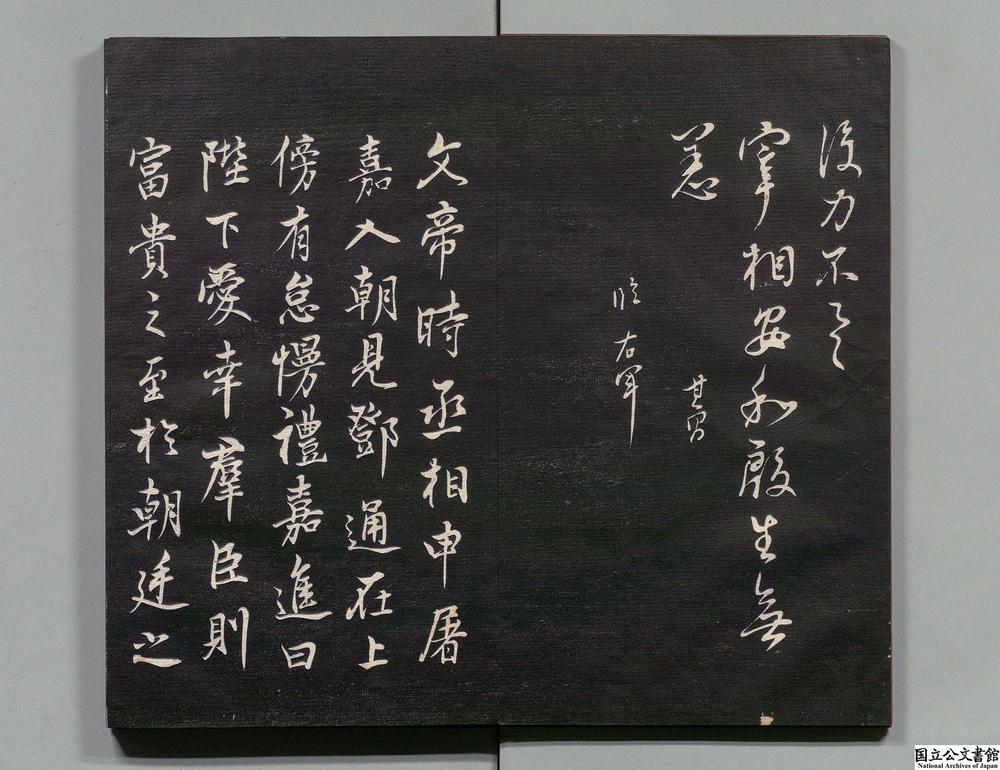 復力不一一
宰相安和殷生無
恙
其昌
臨右軍
文帝時丞相申屠
嘉入朝見鄧通在上
傍有怠慢禮嘉進曰
陛下愛幸羣臣則
富貴之至於朝廷之
国立公文書館
National Archives of Japan